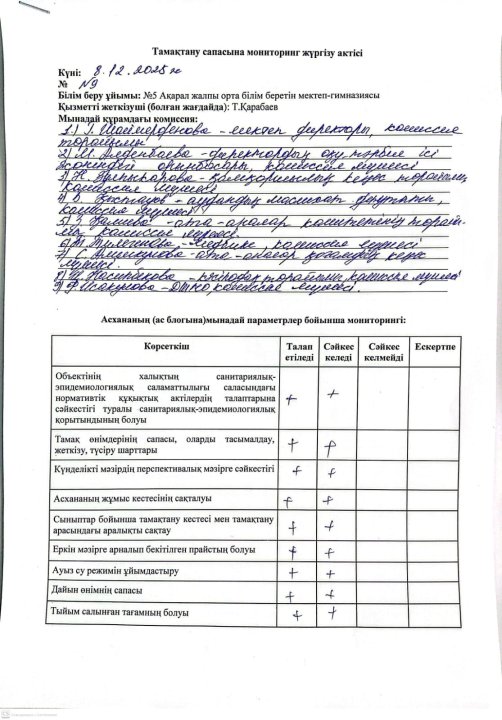 Тамақтану сапасына мониторинг жүргізу актісі
Күні: 8.12.2025ж
№ №9
Білім беру ұйымы: №5 Ақарал жалпы орта білім беретін мектеп-гимназиясы
Қызметті жеткізуші (болған жағдайда): Т.Қарабаев
Мынадай құрамдағы комиссия:
1.) Г. - мектеп директоры, комиссия
төрайымы
2) М. - директордың оқу-тәрбие ісі
жөніндегі орынбасары, комиссия мүшесі
3) Н. - төрайымы,
комиссия мүшесі
4) Б. - аудандық мәслихат депутаты,
комиссия мүшесі
5) З. - ата-аналар комитетінің төрайы-
мы, комиссия мүшесі.
6) М. Тулегенова, медбике, комиссия мүшесі
7) С. - ата-аналар
мүшесі.
8) - төрайымы, комиссия мүшесі
9) Ф. Исакулова - комиссия мүшесі.
Асхананың (ас блогына)мынадай параметрлер бойынша мониторингі:
Көрсеткіш Талап етіледі Сәйкес келеді Сәйкес келмейді Ескертпе
Объектінің халықтың санитариялық-
эпидемиологиялық саламаттылығы саласындағы
нормативтік құқықтық актілердің талаптарына
сәйкестігі туралы санитариялық-эпидемиологиялық
қорытындының болуы + +
Тамақ өнімдерінің сапасы, оларды тасымалдау,
жеткізу, түсіру шарттары + +
Күнделікті мәзірдің перспективалық мәзірге сәйкестігі + +
Асхананың жұмыс кестесінің сақталуы + +
Сыныптар бойынша тамақтану кестесі мен тамақтану
арасындағы аралықты сақтау + +
Еркін мәзірге арналып бекітілген прайстың болуы + +
Ауыз су режимін ұйымдастыру + +
Дайын өнімнің сапасы + +
Тыйым салынған тағамның болуы + +